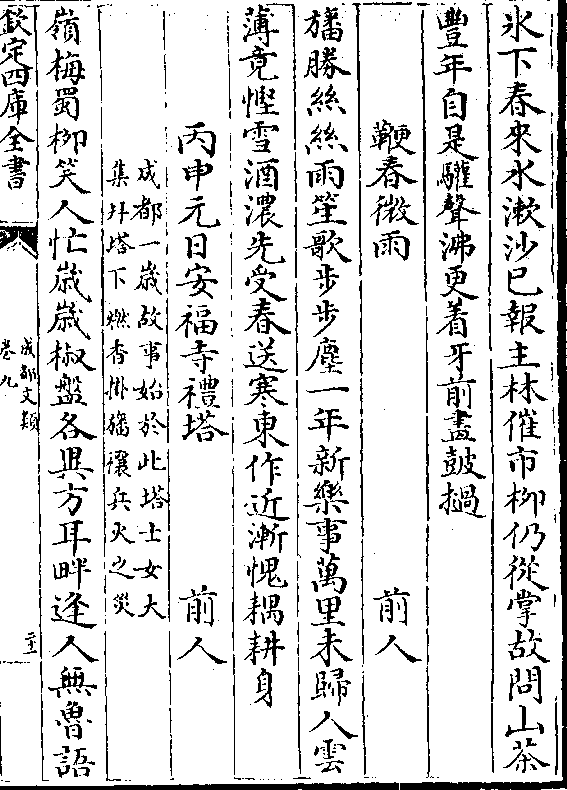 氷下春來水漱沙已報主林催市栁仍從掌故問山茶
豐年自是驩聲沸更着牙前畫皷撾
鞭春微雨　前人
旛勝絲絲雨笙歌步步塵一年新樂事萬里未歸人雲
薄竟慳雪酒濃先受春送寒東作近漸愧耦耕身
丙申元日安福寺禮塔　前人
成都一歲故事始於此塔士女大
集拜塔下燃香掛旛禳兵火之災
嶺梅蜀栁笑人忙歲歲椒盤各異方耳畔逢人無魯語
欽定四庫全書
成都文類
卷九
二十二